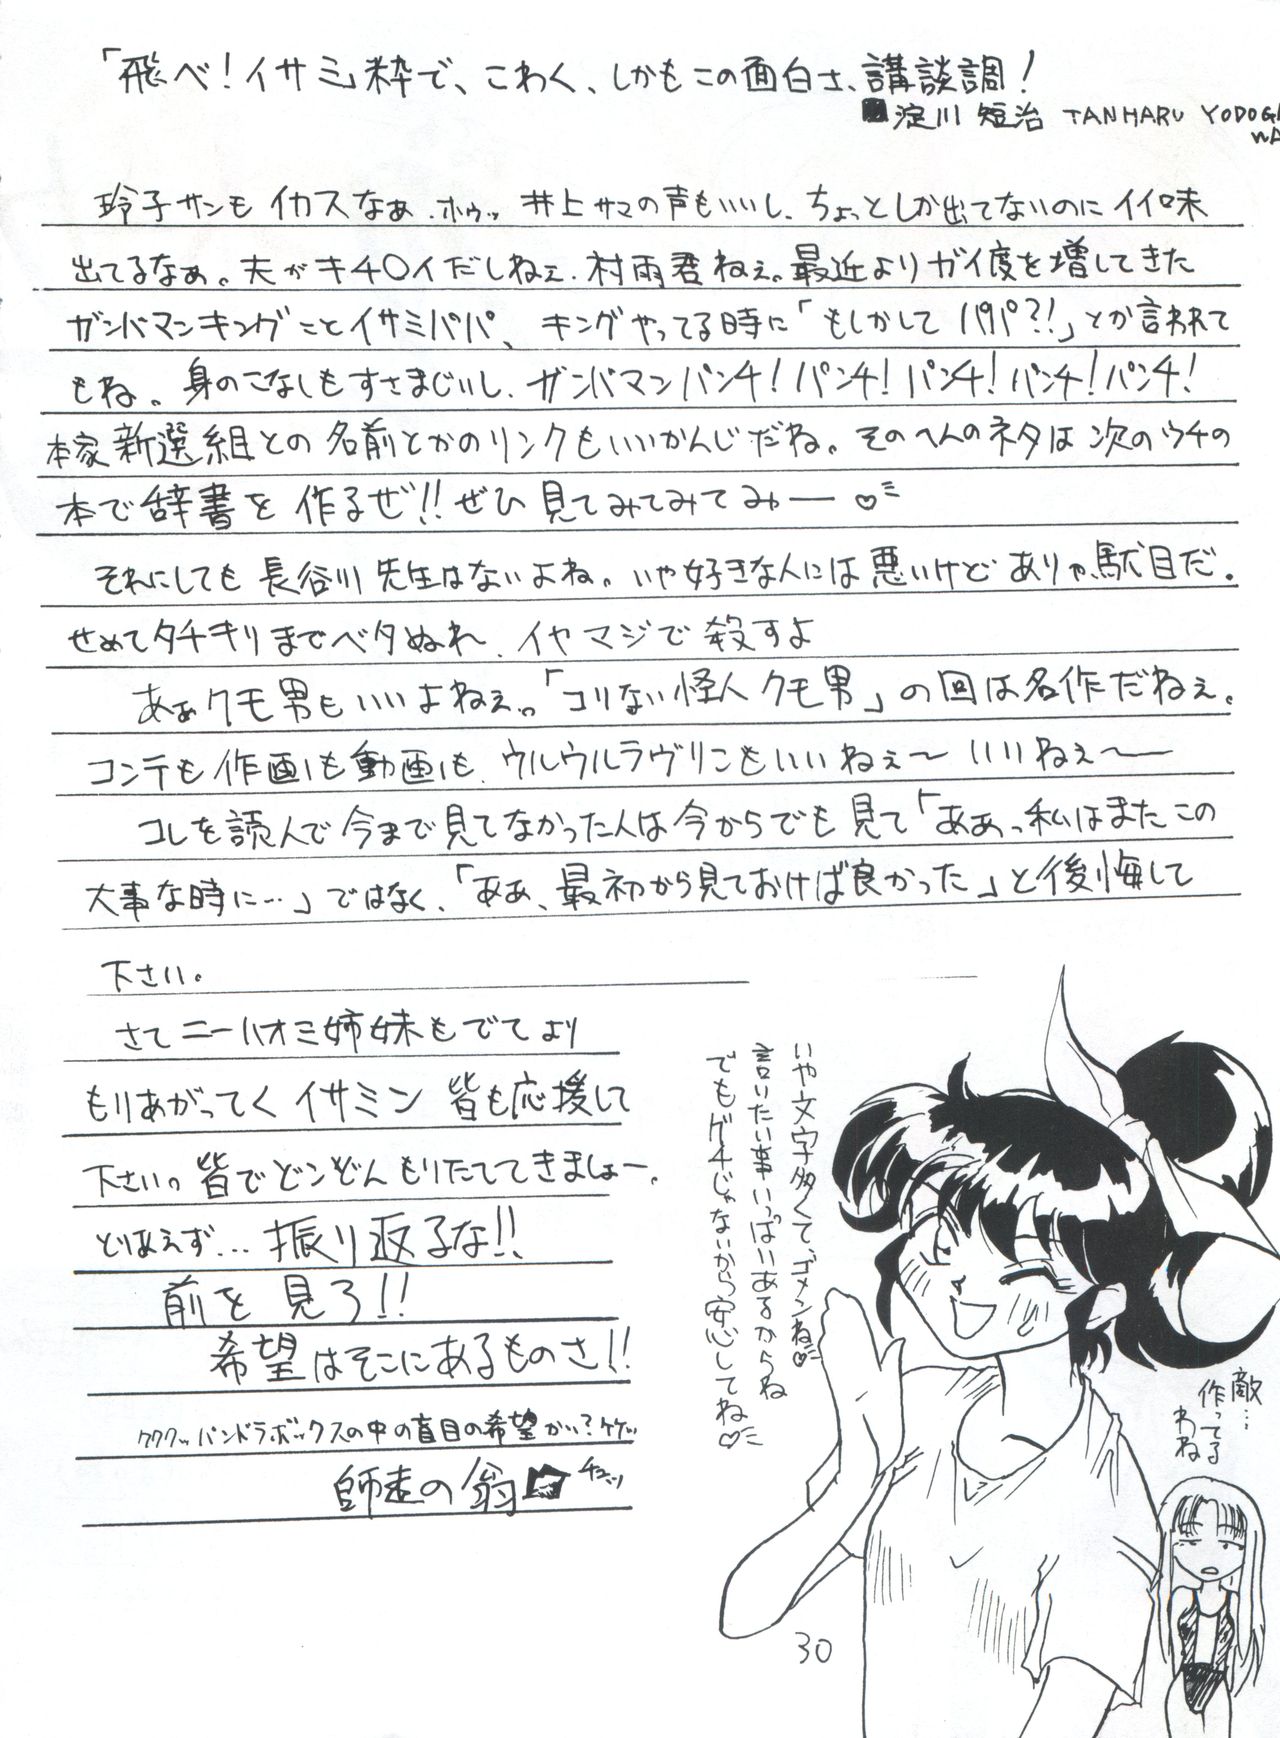 「飛べ!イサミ」粋で、こわく、しかもこの面白さ、講談調!
淀川 短治 TANHARU YODOGAWA
玲子サンもイカスなぁ、ホゥッ 井上サマの声もいいし、ちょっとしか出てないのにイイ味
出てるなぁ。夫がキチ○イだしねぇ、村雨君ねぇ。最近よりガイ度を増してきた
ガンバマンキングことイサミパパ、キングやってる時に「もしかしてパパ?!」とか言われて
もね。身のこなしもすさまじいし、ガンバマンパンチ!パンチ!パンチ!パンチ!パンチ!
本家新選組との名前とかのリンクもいいかんじだね。そのへんのネタは次のウチの
本で辞書を作るぜ!!ぜひ見てみてみてみゅー♡
それにしても長谷川先生はないよね。いや好きな人には悪いけどありゃ駄目だ。
せめてタチキリまでベタぬれ、イヤマジで殺すよ
あぁクモ男もいいよねぇ。「コリない怪人クモ男」の回は名作だねぇ。
コンテも作画も動画も、ウルウルラヴリこもいいねぇ〜いいねぇ〜
コレを読んで今まで見てなかった人は今からでも見て「ああっ私はまたこの
大事な時に…」ではなく、「ああ、最初から見ておけば良かった」と後悔して
下さい。
さてニーハオミ姉妹もでてより
もりあがってくイサミン 皆も応援して
下さい。皆でどンどんもりたててきましょー。
とりあえず…振り返るな!!
前を見ろ!!
希望はそこにあるものさ!!
クククッパンドラボックスの中の盲目の希望かい?ケケッ
師走の翁 チュッ
いや文字多くて、ゴメンね♡
言いたい事いっぱいあるからね
でもグチじゃないから安心してね♡
敵…
作ってる
わね
30